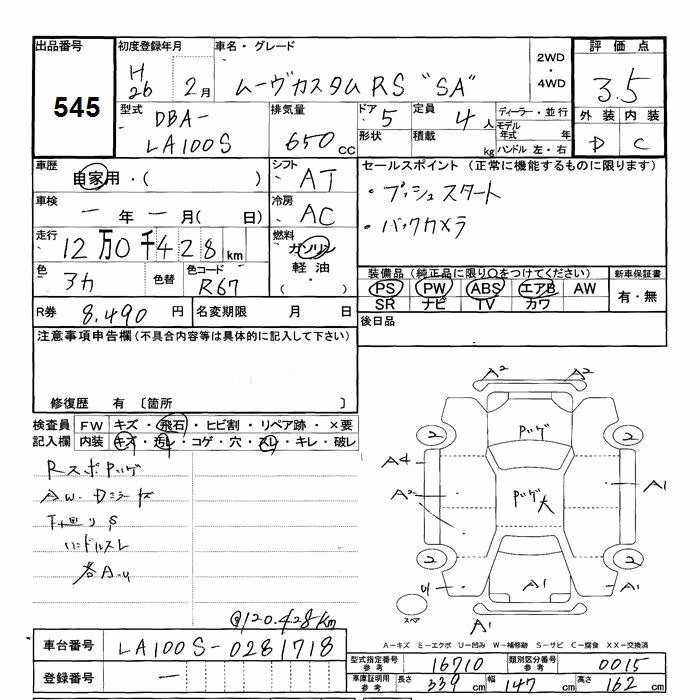 出品番号 545
初度登録年月 H26 2月
車名・グレード ムーヴカスタムRS "SA"
2WD・4WD
評価点 3.5
外装 内装
D C
型式 DBA-LA100S
排気量 650cc
ドア 5
形状
定員 4人
積載 kg
ディーラー・並行
モデル年式 年
ハンドル 左・右
車歴 自家用・( )
シフト AT
セールスポイント (正常に機能するものに限ります)
・プッシュスタート
・バックカメラ
車検 ー年ー月( 日)
冷房 AC
走行 12万0千428km
燃料 ガソリン
軽油
・( )
色 3カ
色替
色コード R67
装備品 (純正品に限り〇をつけてください)
PS PW ABS エアB AW
SR ナビ TV カワ
新車保証書
有・無
R券 8,490円
名変期限 月 日
後日品
注意事項申告欄(不具合内容等は具体的に記入して下さい)
修復歴 有 〔箇所 〕
検査員記入欄
FW キズ・飛石・ヒビ割・リペア跡・×要
内装 キズ・汚レ・コゲ・穴・スレ・キレ・破レ
ハンドルスレ
各A-U
@120.428km
A2 A2
2 2
A4
A2
A1
2 2
U
A1
A1
A1
スペア
A-キズ E-エクボ U-凹み W-補修跡 S-サビ C-腐食 XX-交換済
車台番号 LA100S-0281718
登録番号 ー
型式指定番号 参考 16710
類別区分番号 参考 0015
車庫証明用 参考 長さ 339cm 幅 147cm 高さ 162cm